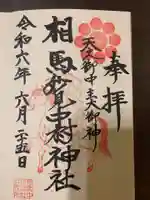 奉拝
天之御中主大御神
相馬中村神社
令和六年六月二十五日